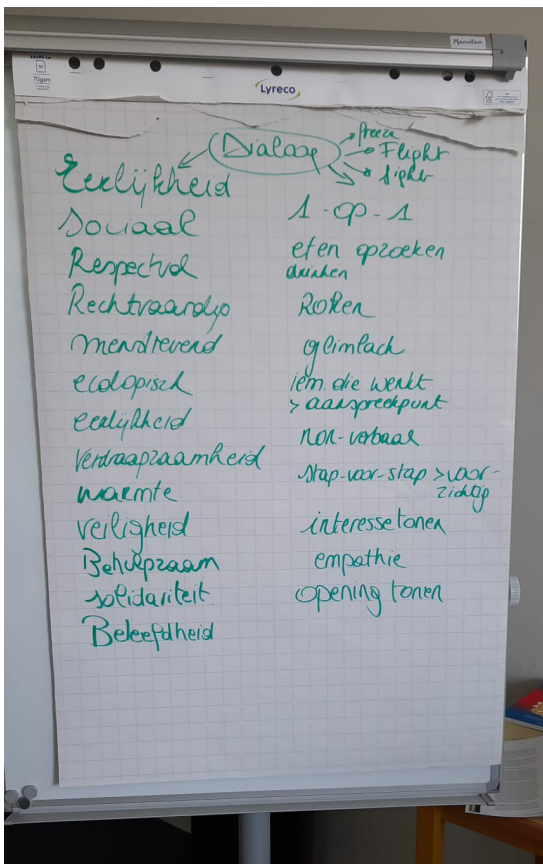 Mandon
70gsm
Lyreco
Dialoog
freeze
Flight
fight
Eerlijkheid
Sociaal
Respectvol
Rechtvaardig
menslievend
ecologisch
eerlijkheid
verdraagzaamheid
warmte
veiligheid
Behulpzaam
solidariteit
Beleefdheid
1-op-1
eten opzoeken
drinken
Roken
glimlach
iem. die werkt
> aanspreekpunt
non-verbaal
stap-voor-stap > voor-
zichtig
interesse tonen
empathie
opening tonen